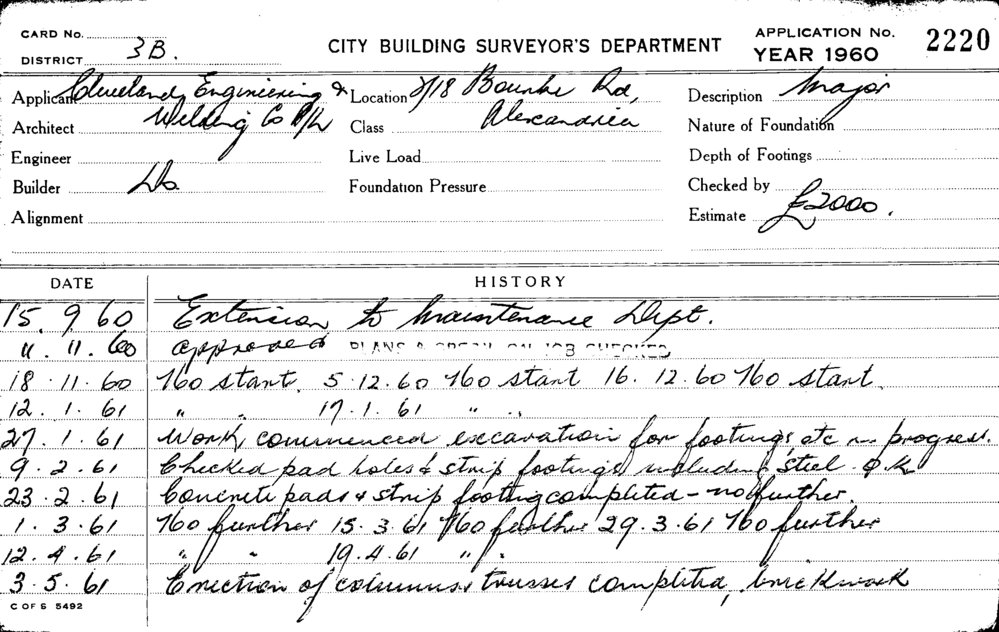 CARD No.
DISTRICT 3B.
CITY BUILDING SURVEYOR'S DEPARTMENT
APPLICATION No. 2220
YEAR 1960
Applicant Cleveland Engineering &
Welding Co P/L
Architect
Engineer
Builder Do
Alignment
Location 2/18 Bourke Rd,
Alexandria
Class
Live Load
Foundation Pressure
Description Major
Nature of Foundation
Depth of Footings
Checked by
Estimate £2000.
DATE HISTORY
15. 9. 60 Extension to Maintenance Dept.
11. 11. 60 approved PLANS & ON JOB CHECKED
18. 11. 60 No start. 5. 12. 60 No start 16. 12. 60 No start.
12. 1. 61 " " 17. 1. 61 " "
27. 1. 61 Work commenced excavation for footings etc in progress.
9. 2. 61 Checked pad holes & strip footings including steel O.K
23. 2. 61 Concrete pads & strip footing completed - no further.
1. 3. 61 No further 15. 3. 61 No further 29. 3. 61 No further
12. 4. 61 " " 19. 4. 61 " "
3. 5. 61 Erection of columns & trusses completed, brickwork
C OF S 5492